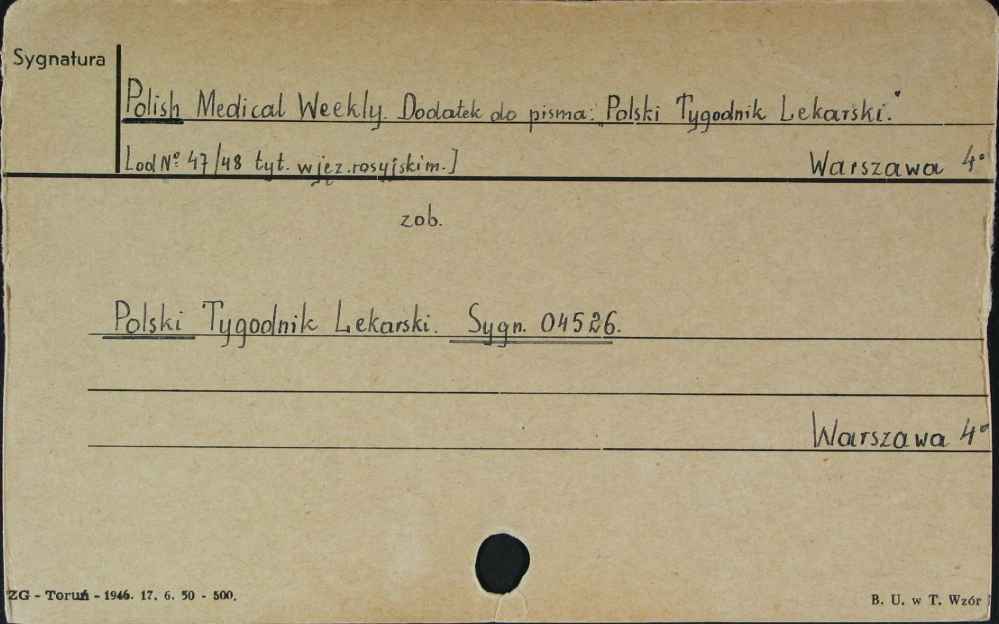 Sygnatura
Polish Medical Weekly. Dodatek do pisma: "Polski Tygodnik Lekarski."
[od Nº 47/48 tyt. w jęz. rosyjskim.] Warszawa 4°
zob.
Polski Tygodnik Lekarski. Sygn. 04526.
Warszawa 4°
ZG - Toruń - 1946. 17. 6. 50 - 500. B. U. w T. Wzór